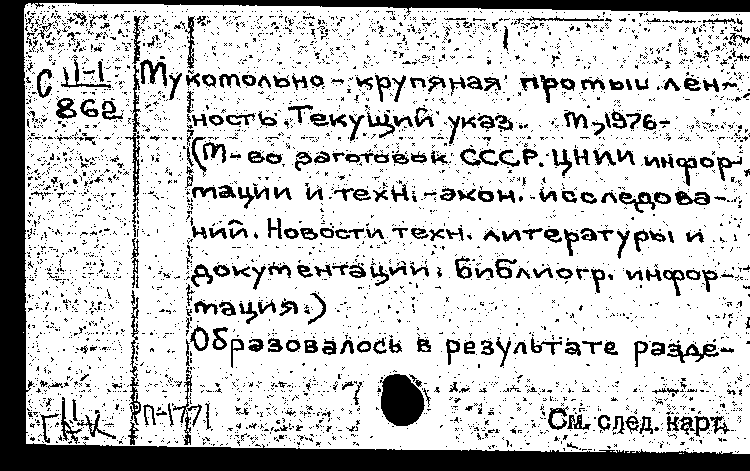 С II-1
862
Мукомольно-крупяная промышлен-
ность. Текущий указ. М., 1976-
(М-во заготовок СССР. ЦНИИ инфор-
мации и техн.-экон. исследова-
ний. Новости техн. литературы и
документации. Библиогр. инфор-
мация.)
Образовалось в результате разде-
П-1771
См. след. карт.